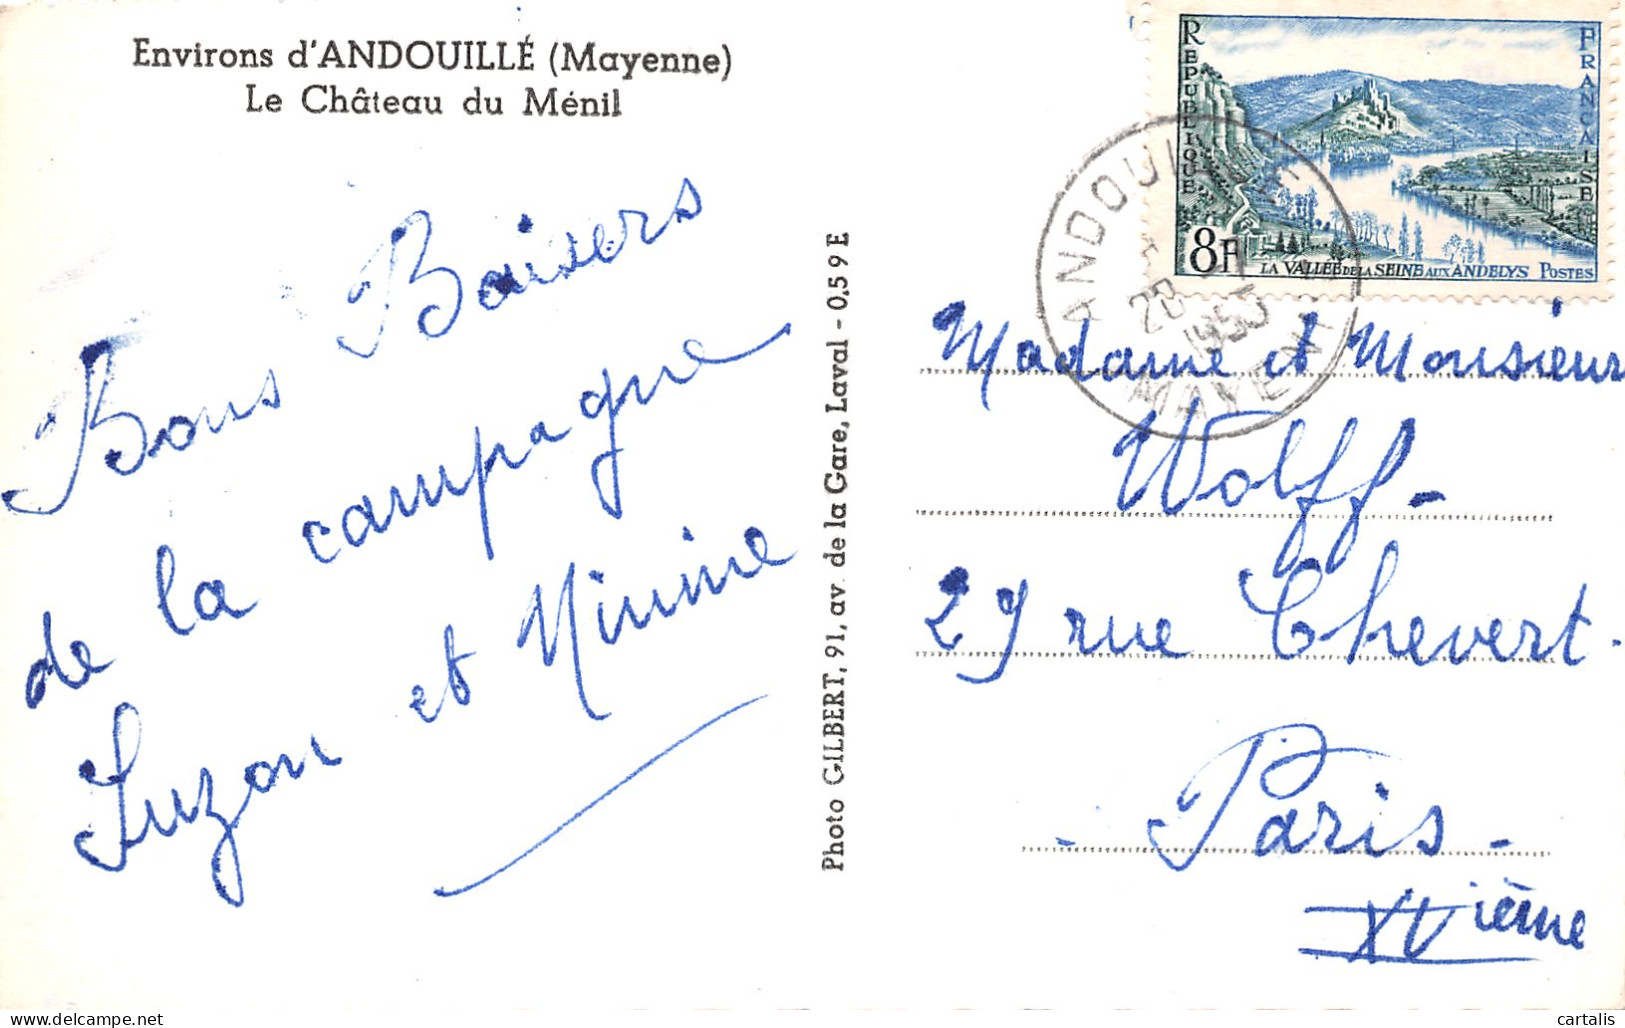 Environs d'ANDOUILLÉ (Mayenne)
Le Château du Ménil
Bons Baisers
de la campagne
Suzon et Ninine
Photo GILBERT, 91, av. de la Gare, Laval - 0,59 E
RÉPUBLIQUE
FRANÇAISE
8F
LA VALLÉE DE LA SEINE AUX ANDELYS POSTES
ANDOUILLÉ
28
1955
MAYENNE
Madame et Monsieur
Wolff -
29 rue Chevert.
- Paris -
XVième
cartalis